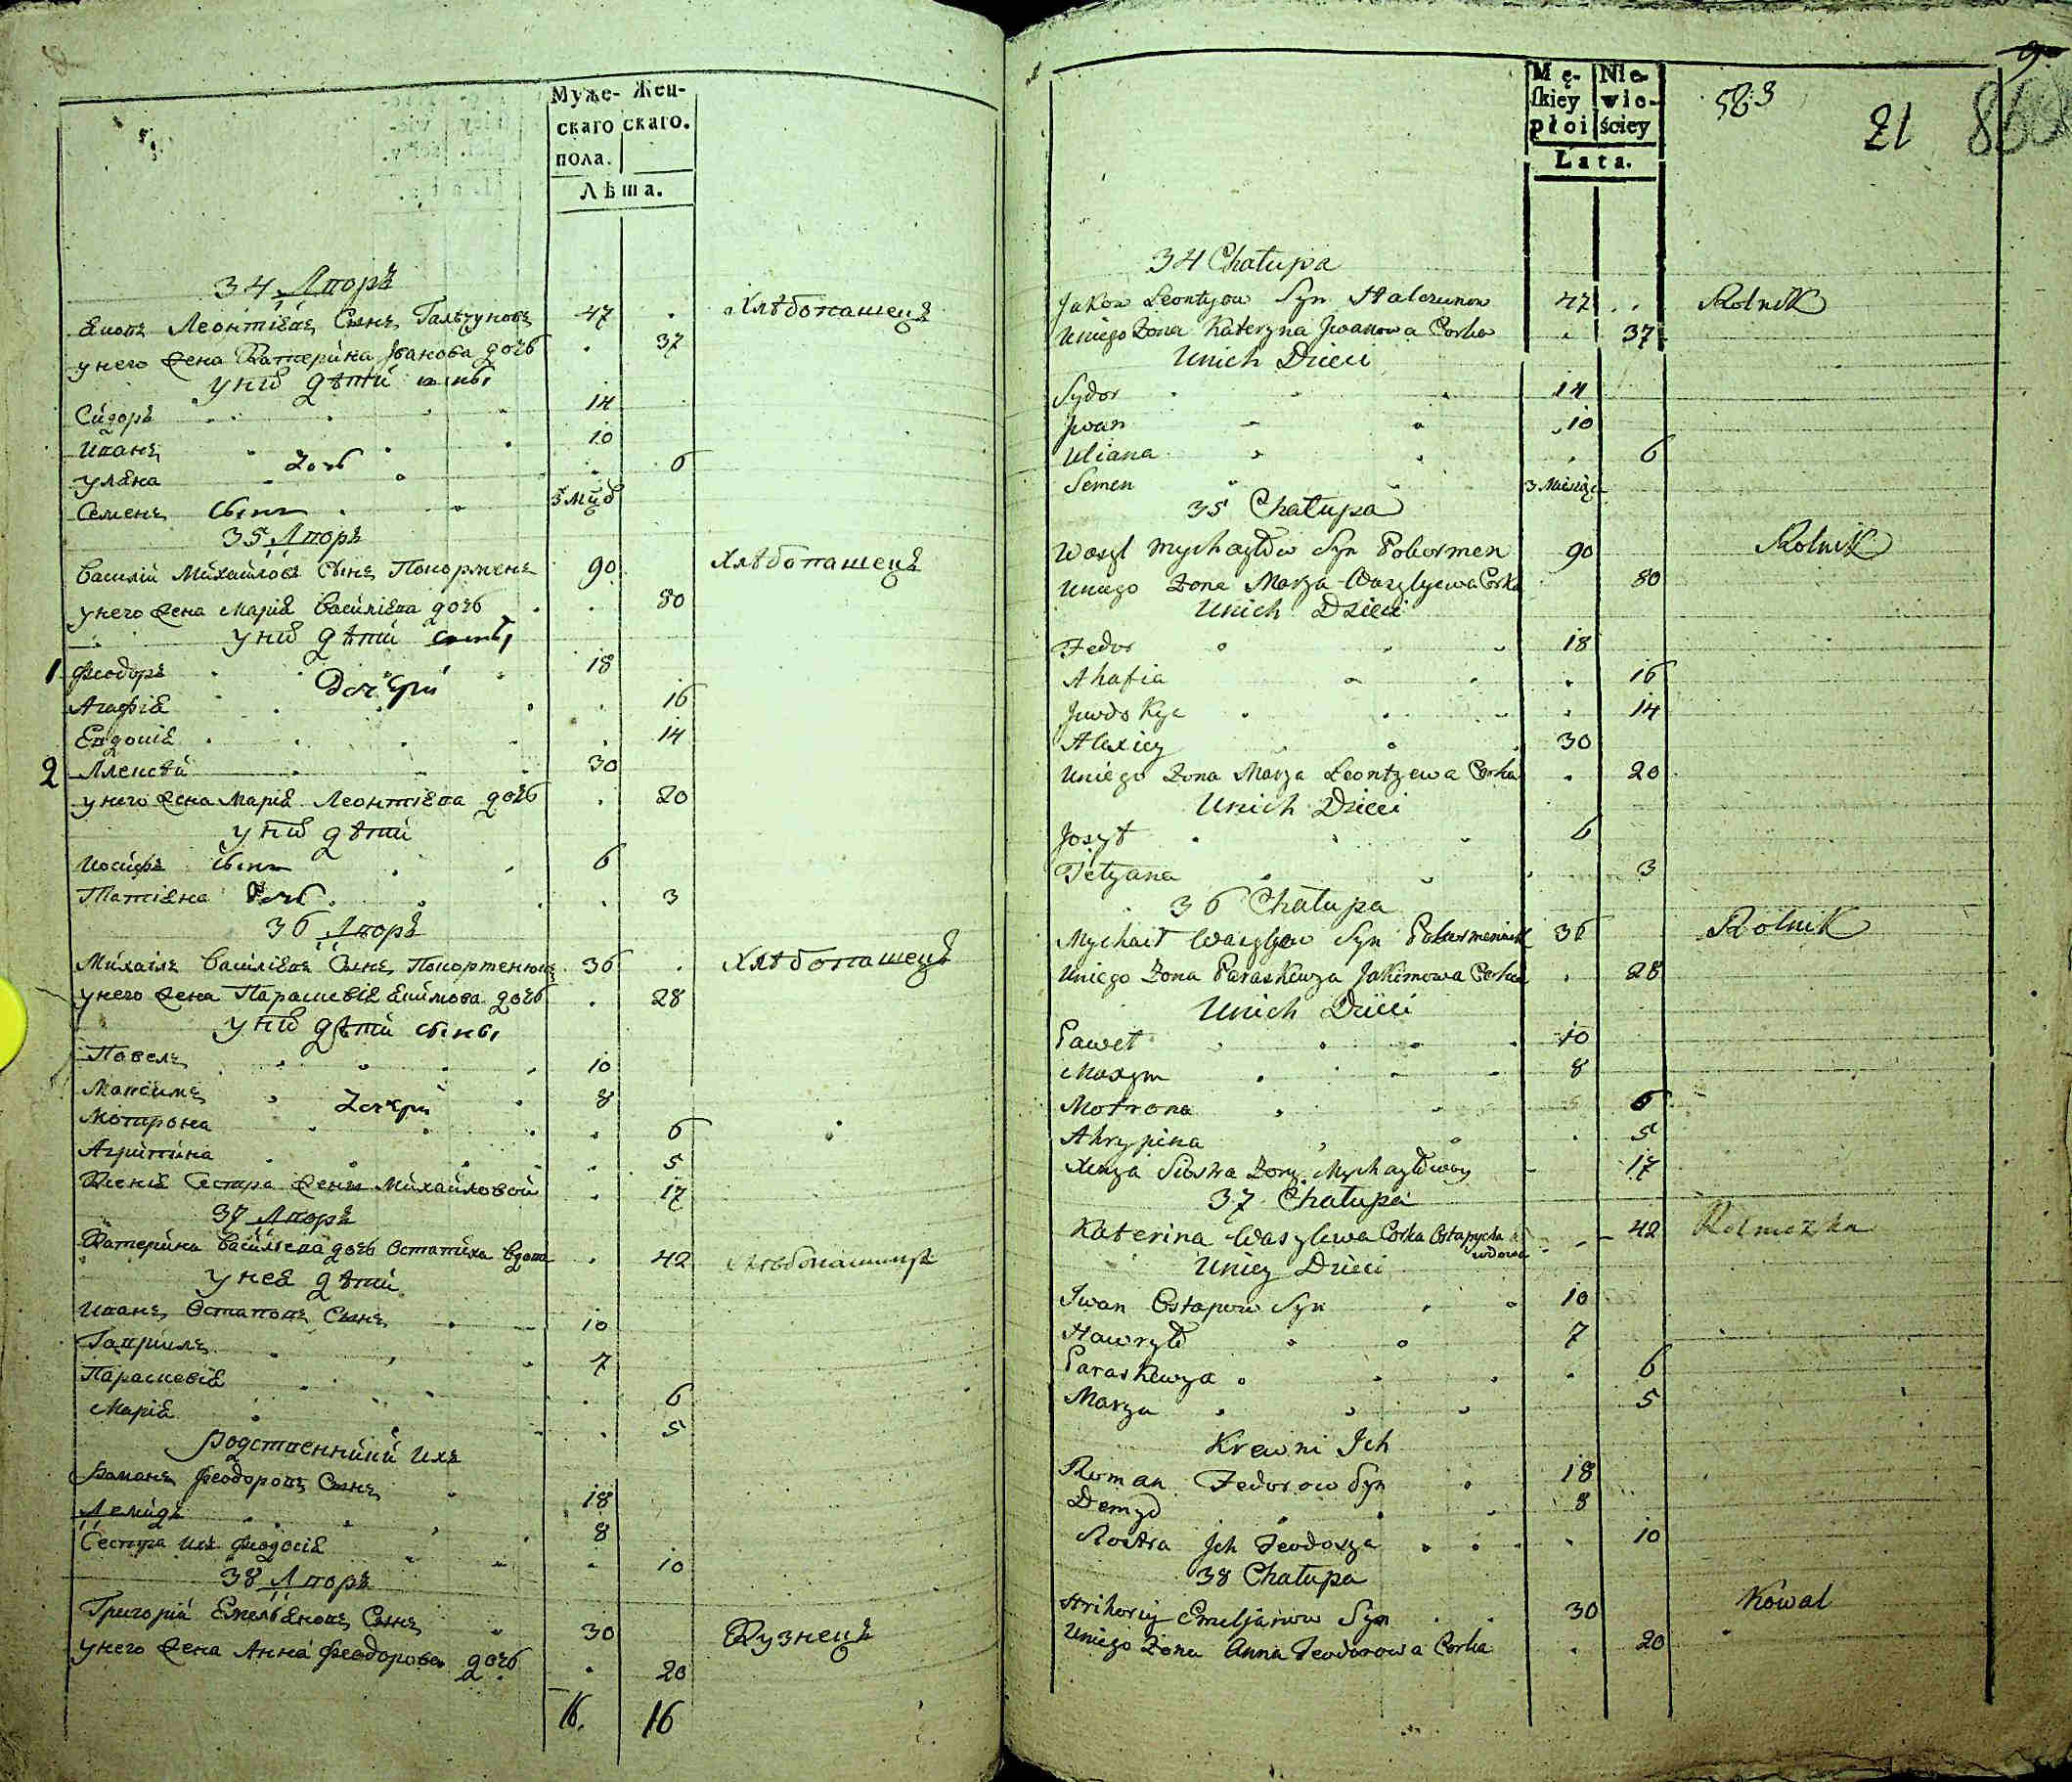 Муже- Жен-
скаго скаго.
пола.
Лѣта.
34 Дворъ
Яковъ Леонтіевъ Сынъ Галъчуновъ 47 Хлѣбопашецъ
у него жена Катерина Иванова дочь 37
у них дѣти сыны
Сидоръ 14
Иванъ 10
дочь
Уляна 6
Семенъ сынъ 3 мцѣ
35 Дворъ
Василій Михайловъ Сынъ 90 Хлѣбопашецъ
у него жена Марія Василіева дочь 80
у них дѣти сыны
1 Феодоръ 18
Дочери
Агафія 16
Евдокія 14
2 Алексѣй 30
у него жена Марія Леонтіева дочь 20
у них дѣти
Иосифъ сынъ 6
Татіяна дочь 3
36 Дворъ
Михаилъ Василіевъ Сынъ 36 Хлѣбопашецъ
у него жена Параскевія Якимова дочь 28
у них дѣти сыны
Павелъ 10
Максимъ 8
дочери
Мотрона 6
Агрипина 5
Ксенія Сестра жены Михайловой 17
37 Дворъ
Катерина Василіева дочь Остапиха вдова 42
у нея дѣти
Иванъ Остаповъ Сынъ 10
Гаврилъ 7
Параскевія 6
Марія 5
Родственники ихъ
Романъ Феодоровъ Сынъ 18
Демидъ 8
Сестра ихъ Феодосія 10
38 Дворъ
Григорій Емельяновъ Сынъ 30 Кузнецъ
у него жена Анна Феодорова дочь 20
16. 16
9
Mę- Nie-
skiey wie-
płci ściey
Lata.
583
21
860
34 Chałupa
Jakow Leontyow Syn Halczunow 47 Rolnik
Uniego Zona Kateryna Jwanowa Corka 37
Unich Dzieci
Sydor 14
Jwan 10
Uliana 6
Semen 3 Miesięcy
35 Chałupa
Wasyl Mychayłow Syn Pokormen 90 Rolnik
Uniego Zona Marya Wasylyewa Corka 80
Unich Dzieci
Fedor 18
Ahafia 16
Jewdokya 14
Alexiey 30
Uniego Zona Marya Leontyewa Corka 20
Unich Dzieci
Josyf 6
Tetyana 3
36 Chałupa
Mychaił Wasylyow Syn 36 Rolnik
Uniego Zona Paraskewya Jakimowa Corka 28
Unich Dzieci
Paweł 10
Maxym 8
Motrona 6
Ahrypina 5
Xenya Siostra Zony Mychayłowey 17
37 Chałupa
Katerina Wasylewa Corka Ostapycha wdowa 42 Rolniczka
Uniey Dzieci
Iwan Ostapow Syn 10
Hawrył 7
Paraskewya 6
Marya 5
Krewni Jch
Roman Fedorow Syn 18
Demyd 8
Siostra Jch Teodosya 10
38 Chałupa
Hrihoriy Emeljanow Syn 30 Kowal
Uniego Zona Anna Teodorowa Corka 20